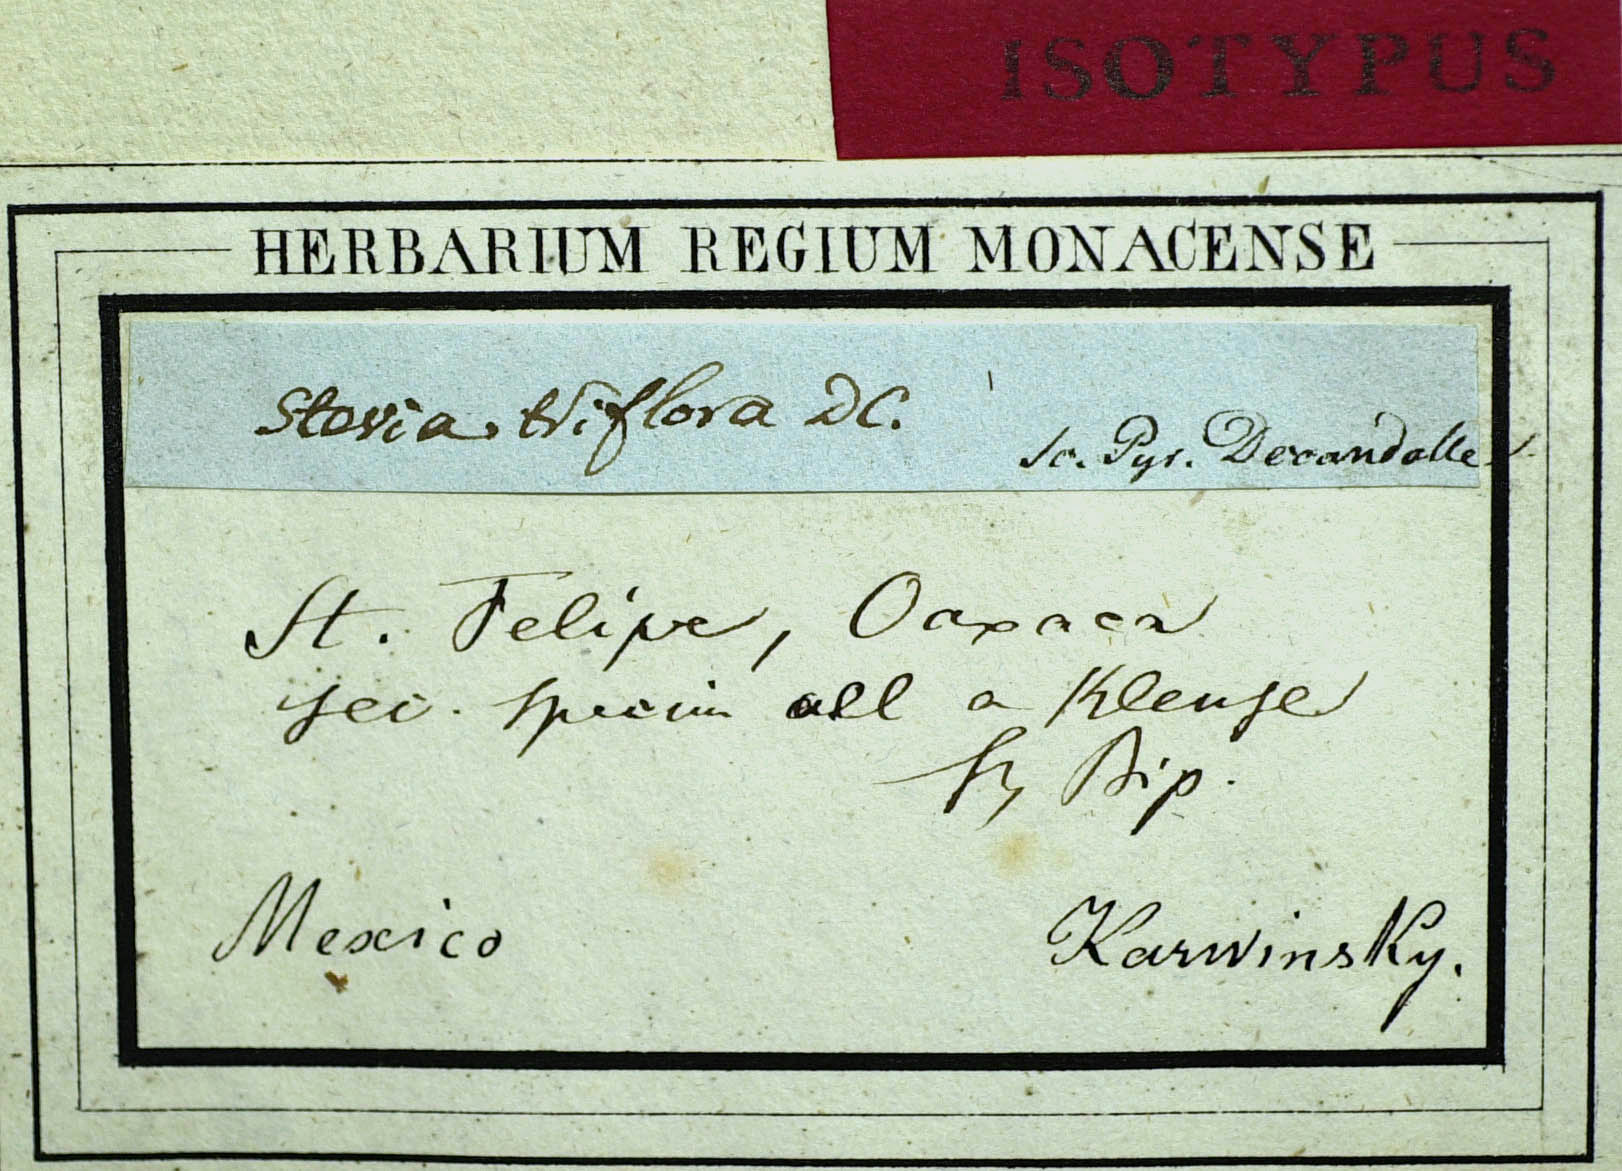 ISOTYPUS
HERBARIUM REGIUM MONACENSE
Stevia triflora DC.
sc. Pyr. Decandolle
St. Felipe, Oaxaca
sec. specim all a Klenze
Sz Bip.
Mexico
Karwinsky.